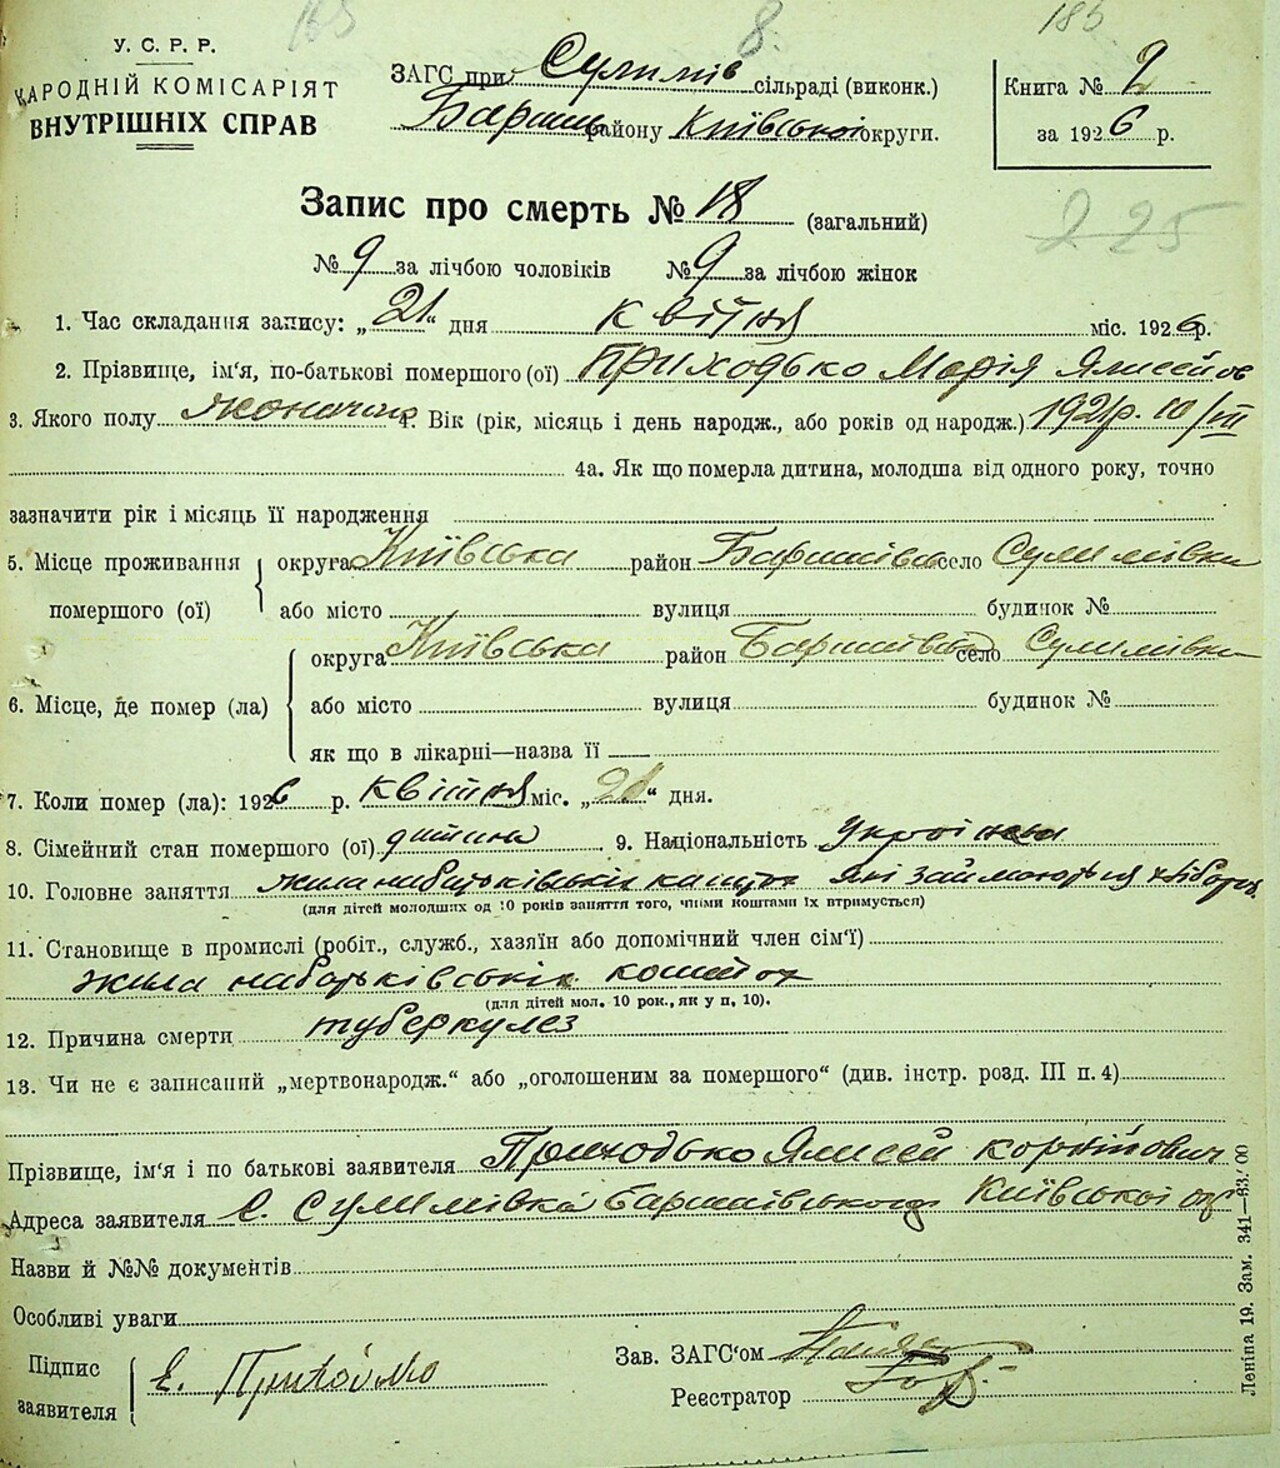 165 8. 185
У. С. Р. Р.
НАРОДНІЙ КОМІСАРІЯТ
ВНУТРІШНІХ СПРАВ
ЗАГС при Сулимів сільраді (виконк.)
Бариш району Київської округи.
Книга № 2
за 1926 р.
Запис про смерть № 18 (загальний)
225
№ 9 за лічбою чоловіків № 9 за лічбою жінок
1. Час складання запису: „21“ дня квітня міс. 1926 р.
2. Прізвище, ім'я, по-батькові помершого (ої) Приходько Марія Ялисейов
3. Якого полу жоночого 4. Вік (рік, місяць і день народж., або років од народж.) 1921р. 10/VII
4а. Як що померла дитина, молодша від одного року, точно
зазначити рік і місяць її народження
5. Місце проживання помершого (ої) округа Київська район Баришівськ село Сулимівка
або місто вулиця будинок №
6. Місце, де помер (ла) округа Київська район Баришівськ село Сулимівка
або місто вулиця будинок №
як що в лікарні—назва її
7. Коли помер (ла): 1926 р. квітня міс. „20“ дня.
8. Сімейний стан помершого (ої) дитина 9. Національність Українка
10. Головне заняття жила на батьківських коштах які займаються хлібороб
(для дітей молодших од 10 років заняття того, чиїми коштами їх втримується)
11. Становище в промислі (робіт., служб., хазяїн або допомічний член сім'ї)
жила на батьківських коштах
(для дітей мол. 10 рок., як у п. 10).
12. Причина смерти туберкулез
13. Чи не є записаний „мертвонародж.“ або „оголошеним за помершого“ (див. інстр. розд. III п. 4)
Прізвище, ім'я і по батькові заявителя Приходько Ялисей Корнійович
Адреса заявителя с. Сулимівка Баришівського Київської окр
Назви й №№ документів
Особливі уваги
Підпис заявителя Е. Приходько
Зав. ЗАГС'ом
Реєстратор
Леніна 19. Зам. 341—83.000